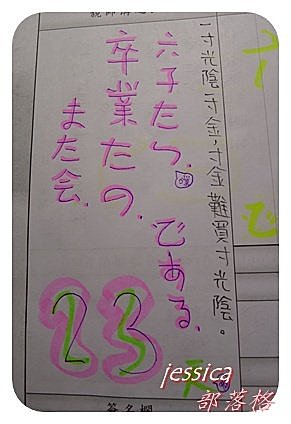 一寸光陰一寸金,寸金難買寸光陰。
六子たら. である.
卒業たの.
また会.
23
で
簽名欄
jessica
部落格